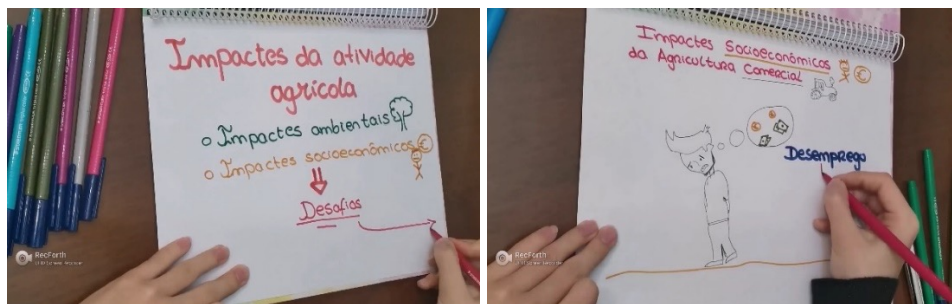 Impactes da atividade
agrícola
o Impactes ambientais
o Impactes socioeconômicos
Desafios
RecForth
Impactes Socioeconômicos
da Agricultura Comercial
Desemprego
RecForth